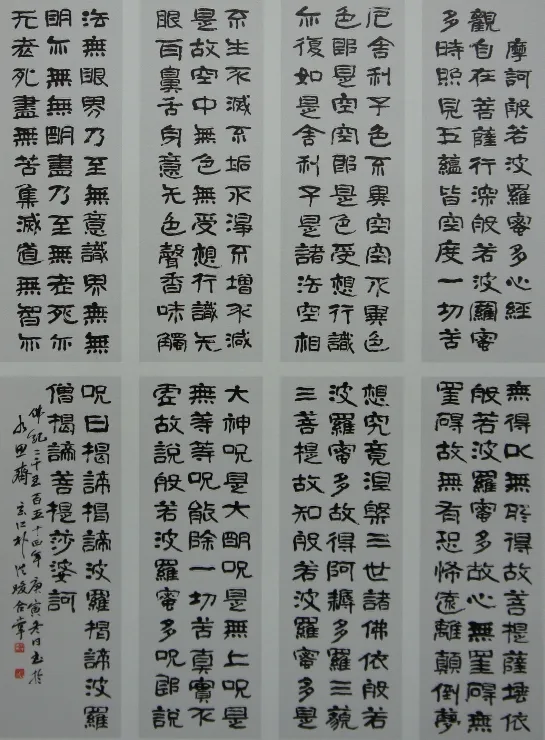 摩訶般若波羅蜜多心經
觀自在菩薩行深般若波羅蜜
多時照見五蘊皆空度一切苦
厄舍利子色不異空空不異色
色即是空空即是色受想行識
亦復如是舍利子是諸法空相
不生不滅不垢不淨不增不減
是故空中無色無受想行識无
眼耳鼻舌身意无色聲香味觸
法無眼界乃至無意識界無無
明亦無無明盡乃至無老死亦
无老死盡無苦集滅道無智亦
無得以無所得故菩提薩埵依
般若波羅蜜多故心無罣礙無
罣礙故無有恐怖遠離顛倒夢
想究竟涅槃三世諸佛依般若
波羅蜜多故得阿耨多羅三藐
三菩提故知般若波羅蜜多是
大神呪是大明呪是無上呪是
無等等呪能除一切苦真實不
虛故說般若波羅蜜多呪即說
呪曰揭諦揭諦波羅揭諦波羅
僧揭諦菩提莎婆訶
佛紀二千五百五十四年庚寅冬月書於
思齋 朴 合掌